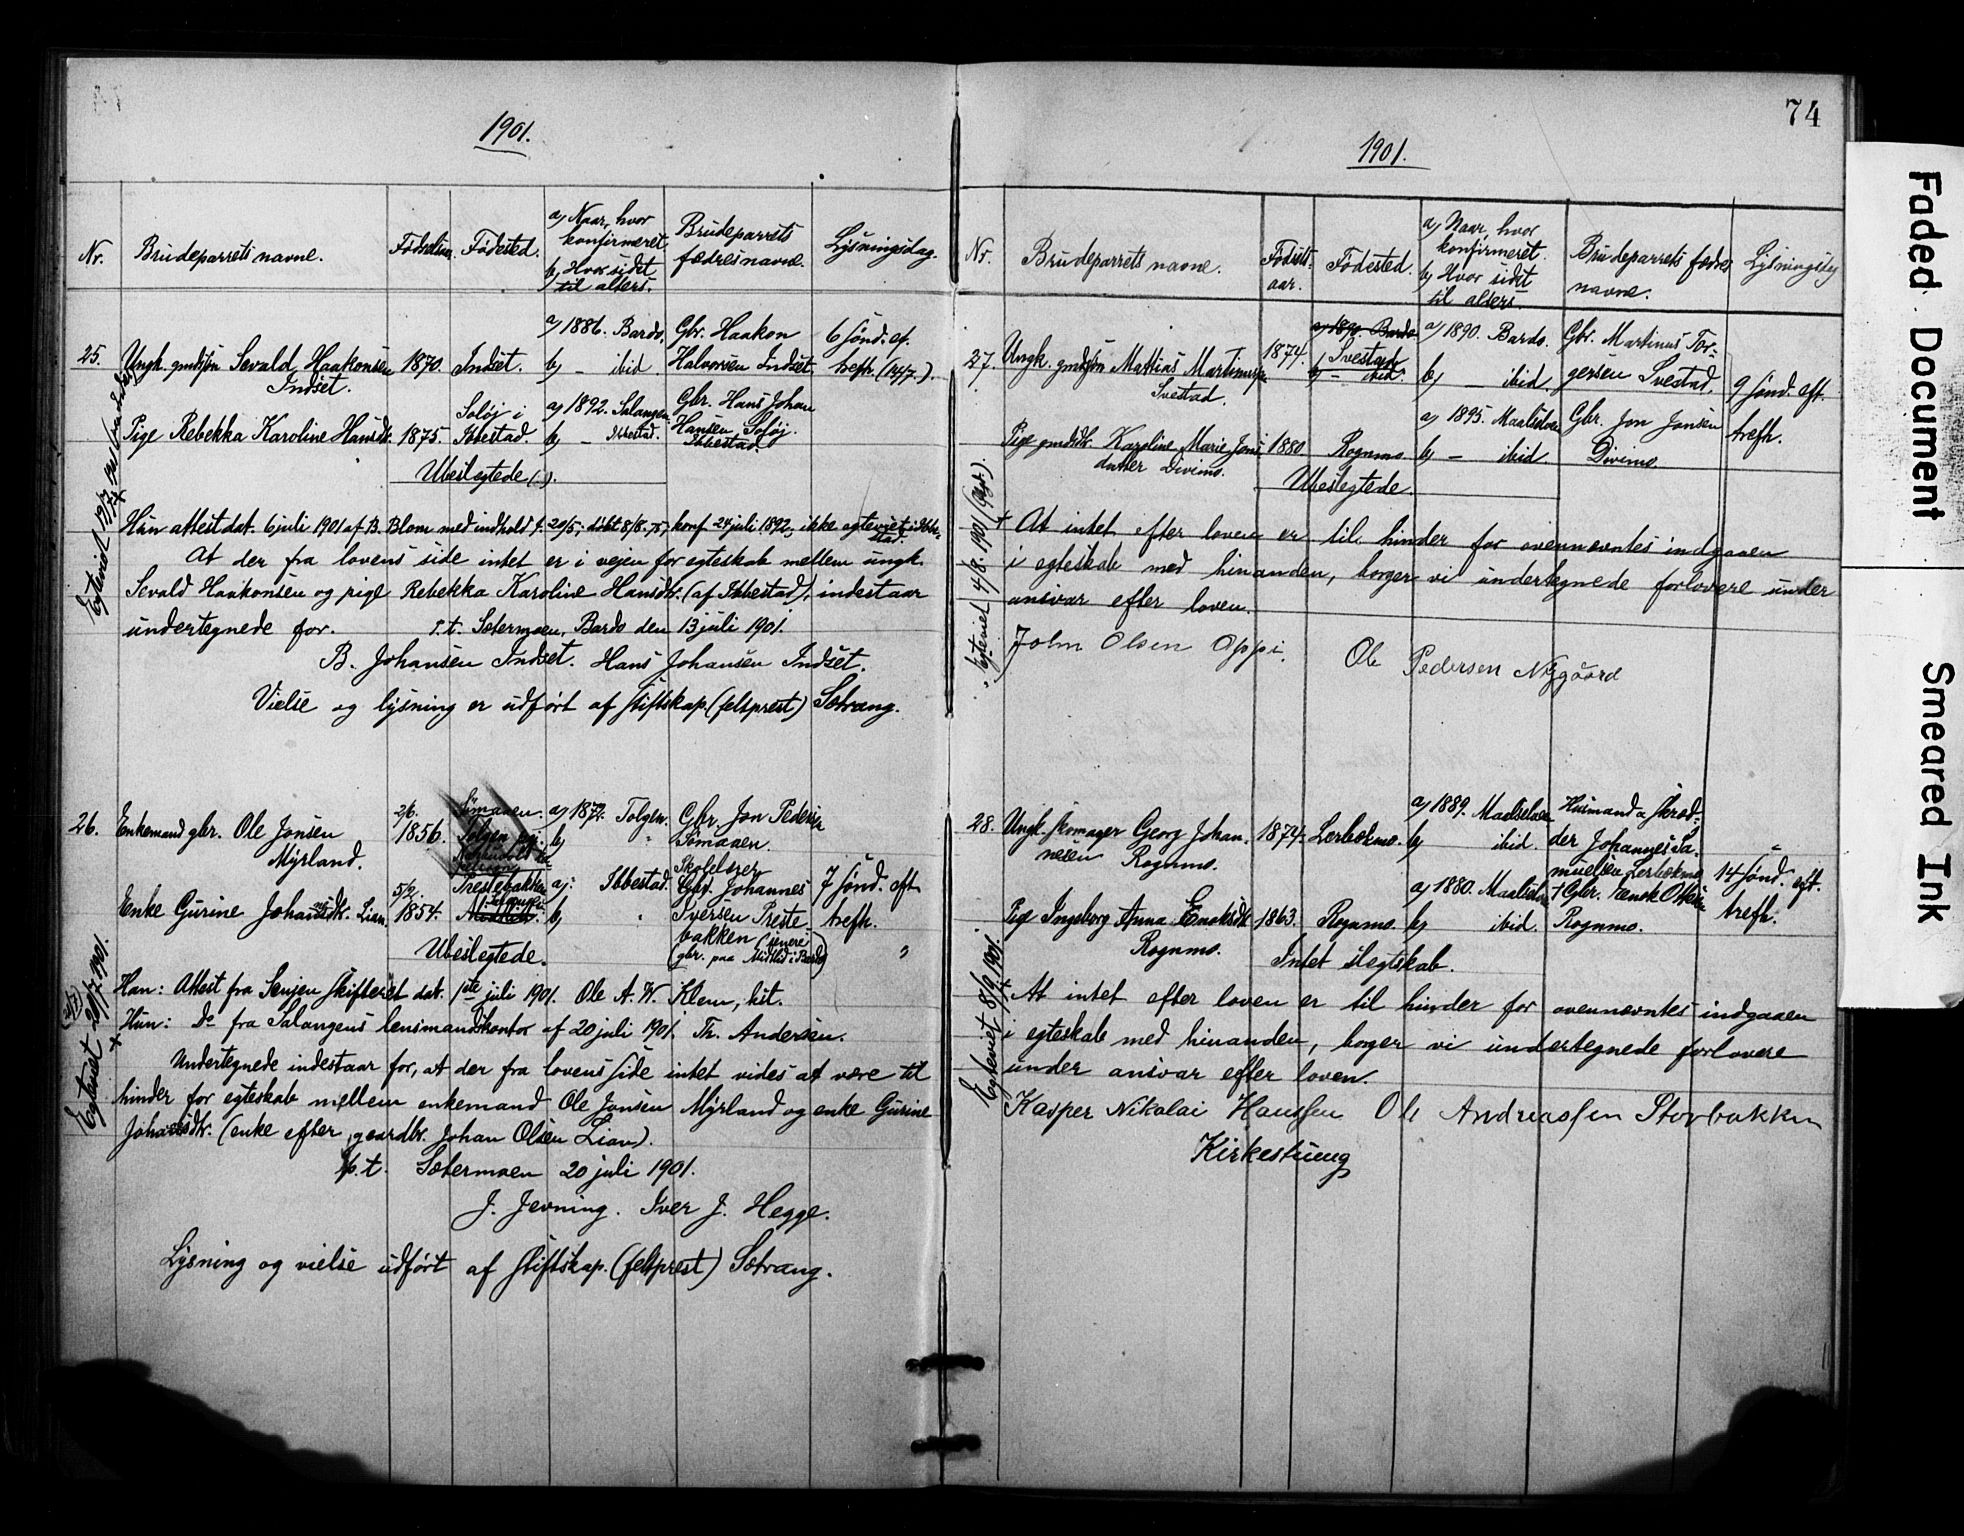 1901.
Nr. Brudeparrets navne. Fødested. a) Naar, hvor konfirmeret. b) Hvor sidst til alters. Brudeparrets fædres navne. Lysningsdag.
25. Ungk. gmdsøn Sevald Haakonsen 1870. Indset. a) 1886. Bardo. Gbr. Haakon 6 sønd. ef.
Indset. b) – ibid Halvorsen Indset trefh. (14/7).
Pige Rebekka Karoline Hansdtr. 1875. Soløj i Ibbestad. a) 1892. Salangen b) – Ibbestad. Gbr. Hans Johan Hansen Soløj. Ibbestad.
Ubeslegtede
Hun attest dat. 6 juli 1901 af B. Blom med indhold f: 20/5; døbt 8/8. 75, konf 24 juli 1892, ikke egteviet i Ibbestad.
At der fra lovens side intet er i vejen for egteskab mellem ungk.
Sevald Haakonsen og pige Rebekka Karoline Hansdtr. (af Ibbestad), indestaar
undertegnede for. p.t. Setermoen, Bardo den 13 juli 1901.
B. Johansen Indset. Hans Johansen Indset.
Vielse og lysning er udført af stiftskap. (feltprest) Sotrang.
Egteviet
26. Enkemand gbr. Ole Jonsen 2/6. 1856. a) 1872. Tolgen. Gbr. Jon Pedersen
Myrland. b) " Sømaaen.
Enke Gurine Johannesdtr. Lian 5/2. 1854. Prestebakken a): Ibbestad. b) " Skolelærer Gbr. Johannes Iversen Prestebakken (senere gbr. paa Midtlid i Bardo) 7 sønd. eft trefh.
Ubeslegtede.
Han: Attest fra Senjen skifteret dat. 1ste juli 1901. Ole A. W. Klem, kst.
Hun: Do fra Salangens lensmandskontor af 20 juli 1901. Th. Andersen.
Undertegnede indestaar for, at der fra lovens side intet vides at være til
hinder for egteskab mellem enkemand Ole Jonsen Myrland og enke Gurine
Johansdtr. (enke efter gaardbr. Johan Olsen Lian).
p.t. Setermoen 20 juli 1901.
J. Jevning. Iver J. Hegge.
Lysning og vielse udført af stiftskap. (feltprest) Sotrang.
Egteviet 7 1901.
74
1901.
Nr. Brudeparrets navne. Fødsels-aar. Fødested. a) Naar, hvor konfirmeret. b) Hvor sidst til alters. Brudeparrets fædres navne. Lysningsdag
27. Ungk. gmdsøn Mathias Martinusen 1874. a) 1890. Bardo Svestad b) – ibid. a) 1890. Bardo. Gbr. Martinus Tor-
Svestad. b) – ibid. gersen Svestad. 9 sønd. eft.
Pige gmdsdtr. Karoline Marie Jons- 1880 Rognmo. a) 1895. Maalselven b) – ibid. Gbr. Jon Jonsen trefh.
datter Divimo. Divimo
Ubeslegtede.
At intet efter loven er til hinder for ovennevntes indgaaen
i egteskab med hinanden, borger vi undertegnede forlovere under
ansvar efter loven.
John Olsen Oppi. Ole Pedersen Nygaard
Egteviet 4/8. 1901
28. Ungk. skomager Georg Johan- 1874. Lerbekmo. a) 1889. Maalselven b) ibid. Husmand & skred-
nesen Rognmo. der Johannes Sa-
muelsen Lerbekmo 14 sønd. eft.
Pige Ingeborg Anna Enoksdtr. 1863. Rognmo. a) 1880. Maalselven b) ibid. † Gbr. Enok Rognmo. trefh.
Rognmo. Intet slegtskab.
At intet efter loven er til hinder for ovennevntes indgaaen
i egteskab med hinanden, borger vi undertegnede forlovere
under ansvar efter loven.
Kasper Nikolai Hanssen Ole Andreassen Storbakken
Kirkestueng
Egteviet 8/9 1901.
Faded Document
Smeared Ink